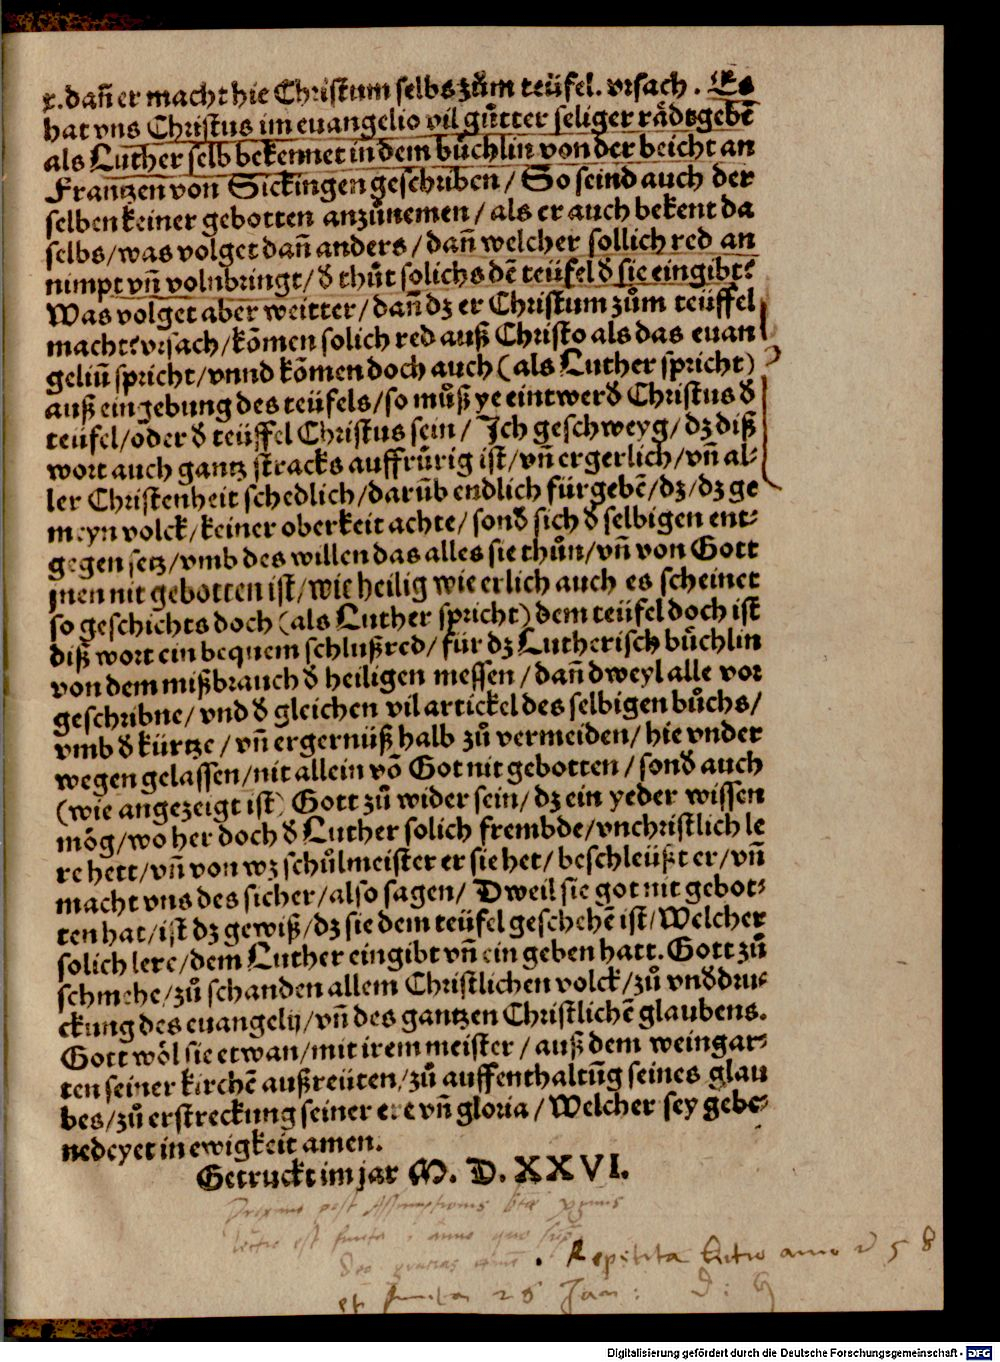 r. dañ er macht hie Christum selbs zům teüfel. vrsach. Es
hat vns Christus im euangelio vil gůtter seliger rädtgebē
als Luther selb bekennet in dem bůchlin von der beicht an
Frantzen von Sickingen geschriben / So seind auch der
selben keiner gebotten anzůnemen / als er auch bekent da
selbs / was volget dañ anders / dañ welcher sollich red an
nimpt vñ volnbringt / d thůt solichs dē teüfel d sie eingibt?
Was volget aber weitter / dañ dz er Christum zům teüffel
macht? vrsach / kömen solich red auß Christo als das euan
geliū spricht / vnnd kömen doch auch (als Luther spricht)
auß eingebung des teüfels / so můß ye eintwerd Christus d
teüfel / oder d teüffel Christus sein / Ich geschweyg / dz diß
wort auch gantz stracks auffrůrig ist / vñ ergerlich / vñ al-
ler Christenheit schedlich / darūb endlich fürgebē / dz / dz ge
meyn volck / keiner oberkeit achte / sond sich d selbigen ent-
gegen setz / vmb des willen das alles sie thůn / vñ von Gott
jnen nit gebotten ist / wie heilig wie erlich auch es scheinet
so geschichts doch (als Luther spricht) dem teüfel doch ist
diß wort ein bequem schlußred / für dz Lutherisch bůchlin
von dem mißbrauch d heiligen messen / dañ dweyl alle vor
geschribne / vnd d gleichen vil artickel des selbigen bůchs /
vmb d kürtze / vñ ergernüß halb zů vermeiden / hie vnder
wegen gelassen / nit allein vō Got nit gebotten / sond auch
(wie angezeigt ist) Gott zů wider sein / dz ein yeder wissen
mög / wo her doch d Luther solich frembde / vnchristlich le
re hett / vñ von wz schůlmeister er sie het / beschleüßt er / vñ
macht vns des sicher / also sagen / Dweil sie got nit gebot-
ten hat / ist dz gewiß / dz sie dem teüfel geschehē ist / Welcher
solich lere / dem Luther eingibt vñ ein geben hatt. Gott zů
schmehe / zů schanden allem Christlichen volck / zů vnddru-
ckung des euangelij / vñ des gantzen Christlichē glaubens.
Gott wöl sie etwan / mit irem meister / auß dem weingar-
ten seiner kirchē außreüten / zů auffenthaltūg seines glau
bes / zů erstreckung seiner ere vñ gloria / Welcher sey gebe-
nedeyet in ewigkeit amen.
Getruckt im jar M. D. XXVI.
post Assumptionis
est anno quo
Repetita lectio anno 58
et finita 28 Jan:
Digitalisierung gefördert durch die Deutsche Forschungsgemeinschaft - DFG